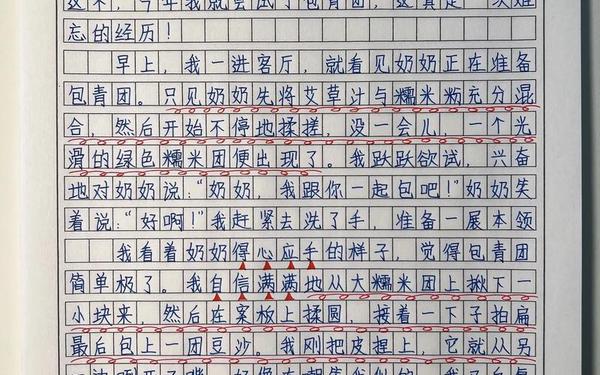 这不，今年我就尝试了包青团，这真是一次难
忘的经历！
早上，我一进客厅，就看见奶奶正在准备
包青团。只见奶奶先将艾草汁与糯米粉充分混
合，然后开始不停地揉搓，没一会儿，一个光
滑的绿色糯米团便出现了。我跃跃欲试，兴奋
地对奶奶说：“奶奶，我跟你一起包吧！”奶奶笑
着说：“好啊！”我赶紧去洗了手，准备一展本领
我看着奶奶得心应手的样子，觉得包青团
简单极了。我自信满满地从大糯米团上揪下一
小块来，然后在案板上揉圆，接着一下子拍扁
最后包上一团豆沙。我刚把皮捏上，它就从另